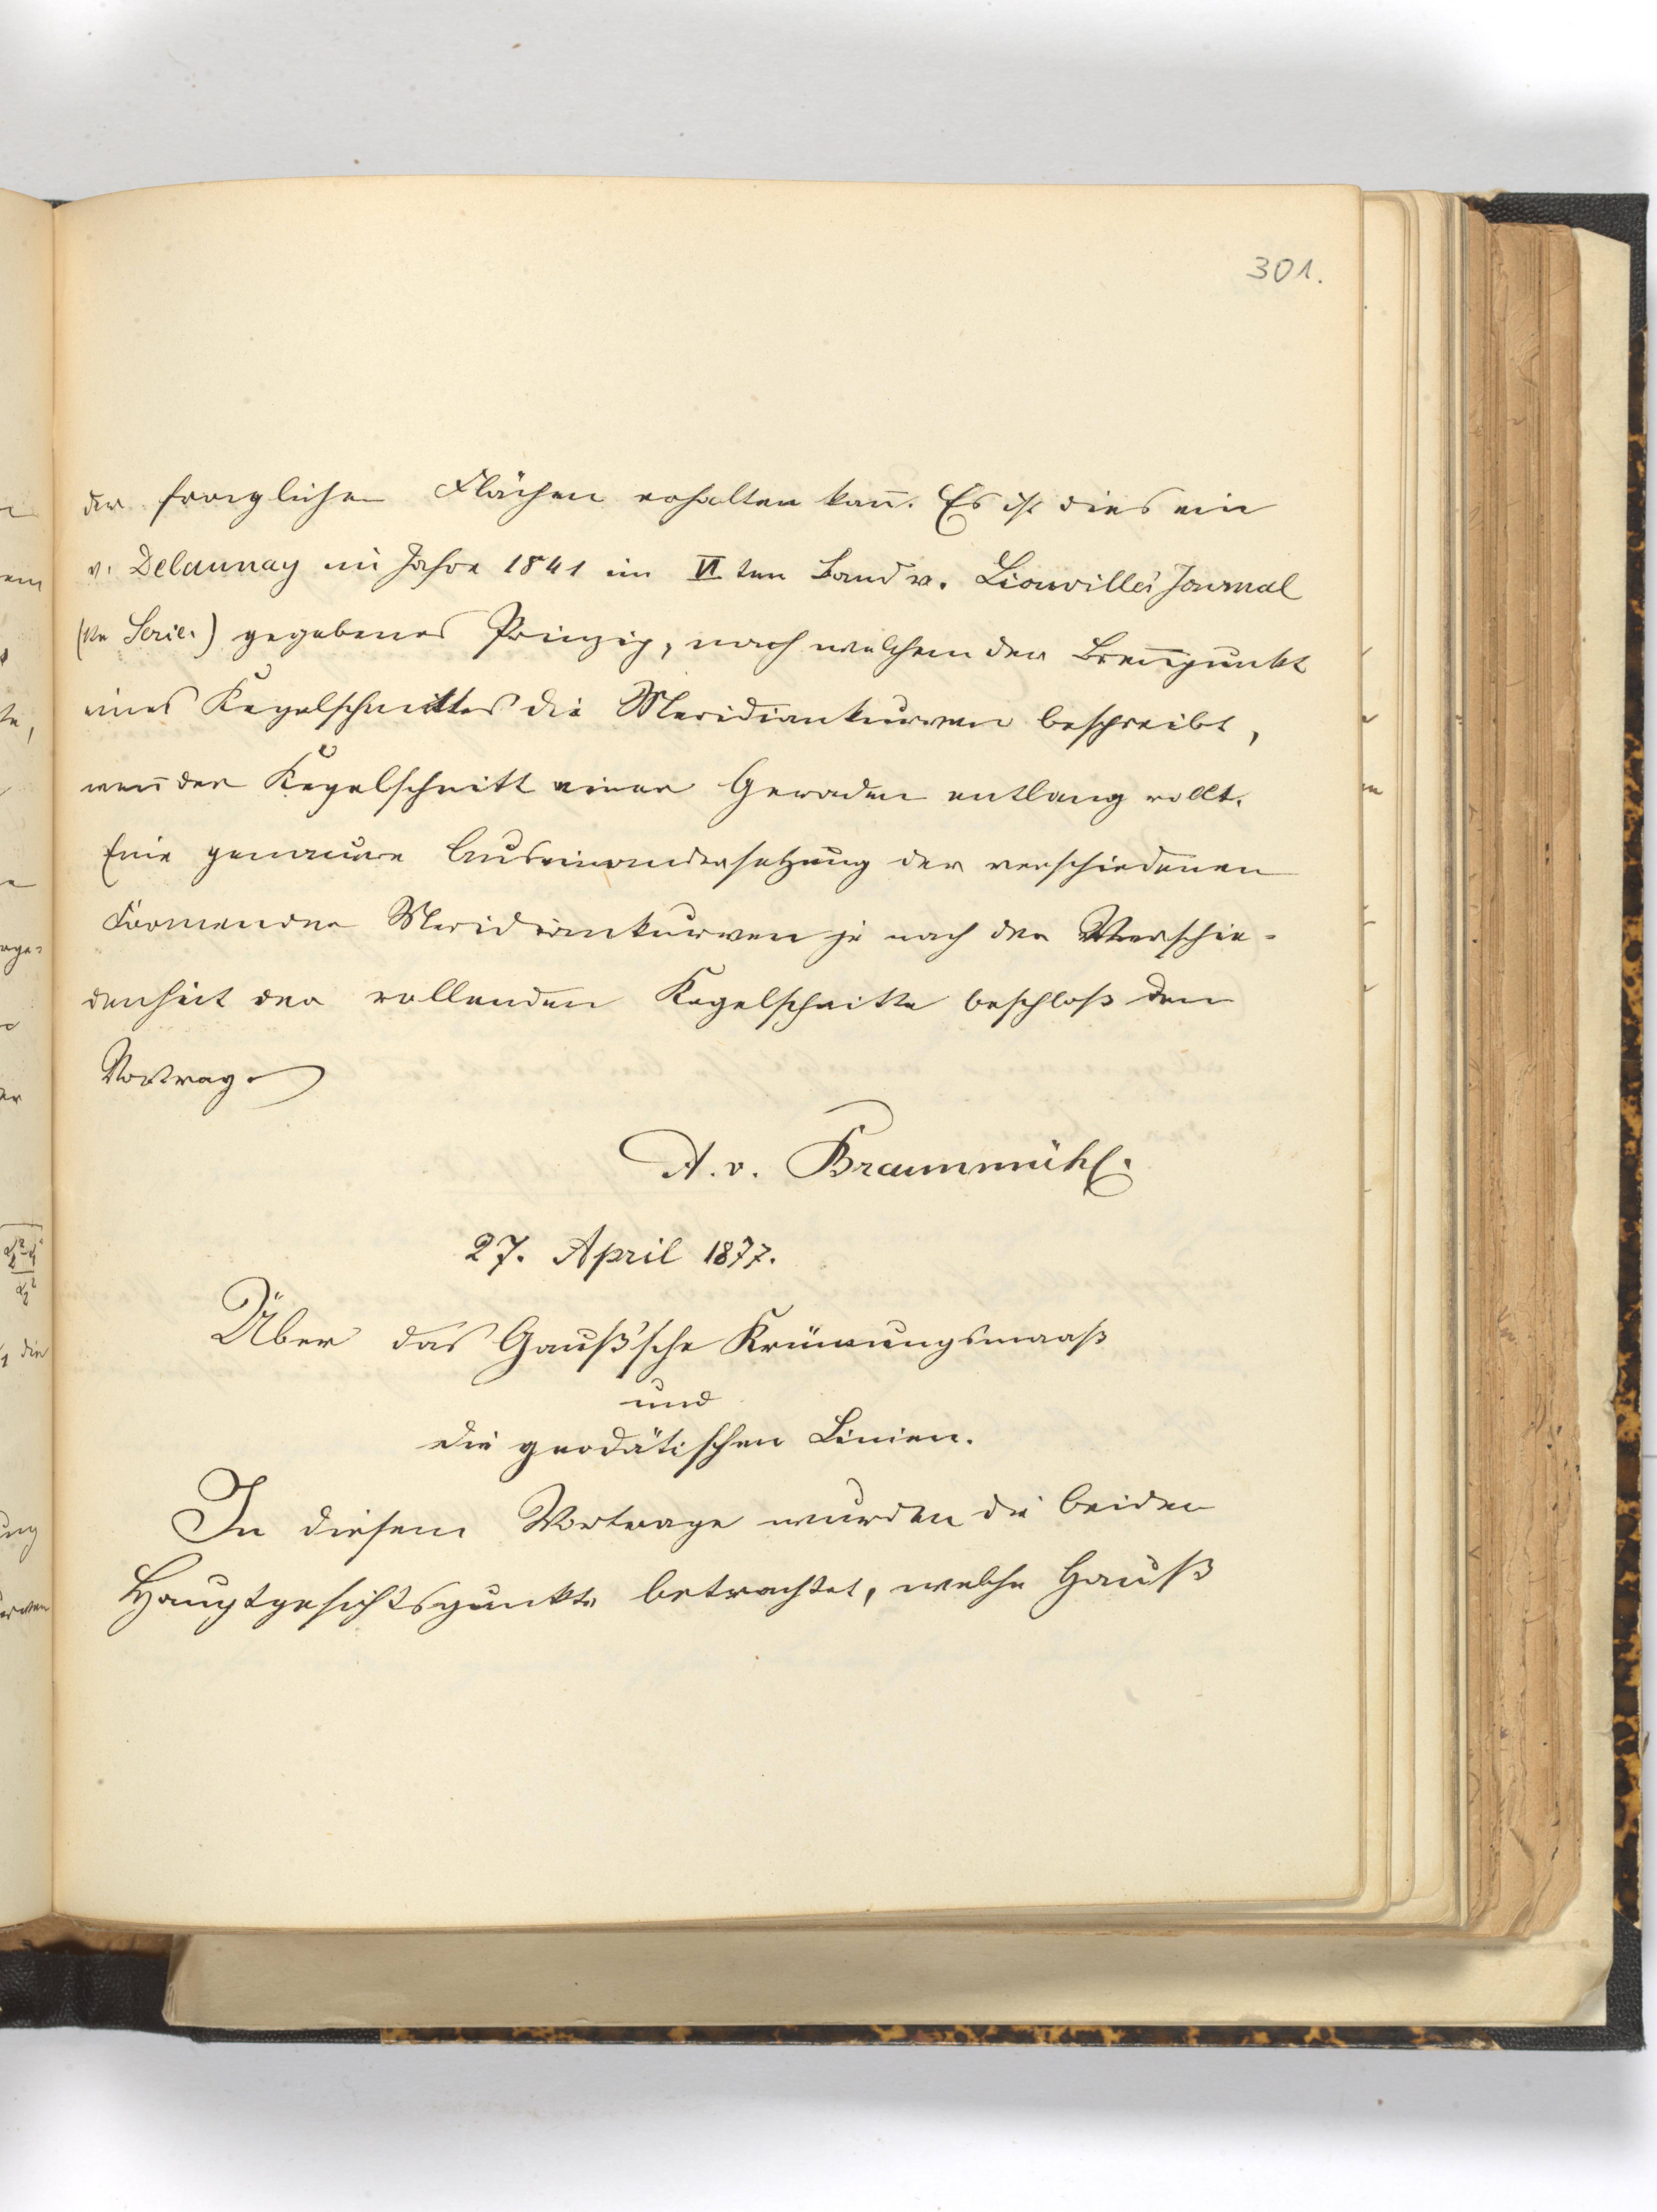 301.
der fraglichen Flächen erhalten kan̄. Es ist dies ein
v. Delaunay im Jahre 1841 im VI ten Band v. Liouville's Journal
(Ie Serie.) gegebenes Prinzip, nach welchem der Bren̄punkt
eines Kegelschnittes die Meridiankurven beschreibt,
wen̄ der Kegelschnitt einer Geraden entlang rollt.
Eine genauere Auseinandersetzung der verschiedenen
Formen der Meridiankurven je nach der Verschie-
denheit der rollenden Kegelschnitte beschloß den
Vortrag.
A. v. Braunmühl.
27. April 1877.
Über das Gauß'sche Krüm̄ungsmaaß
und
die geodätischen Linien.
In diesem Vortrage wurden die beiden
Hauptgesichtspunkte betrachtet, welche Gauß